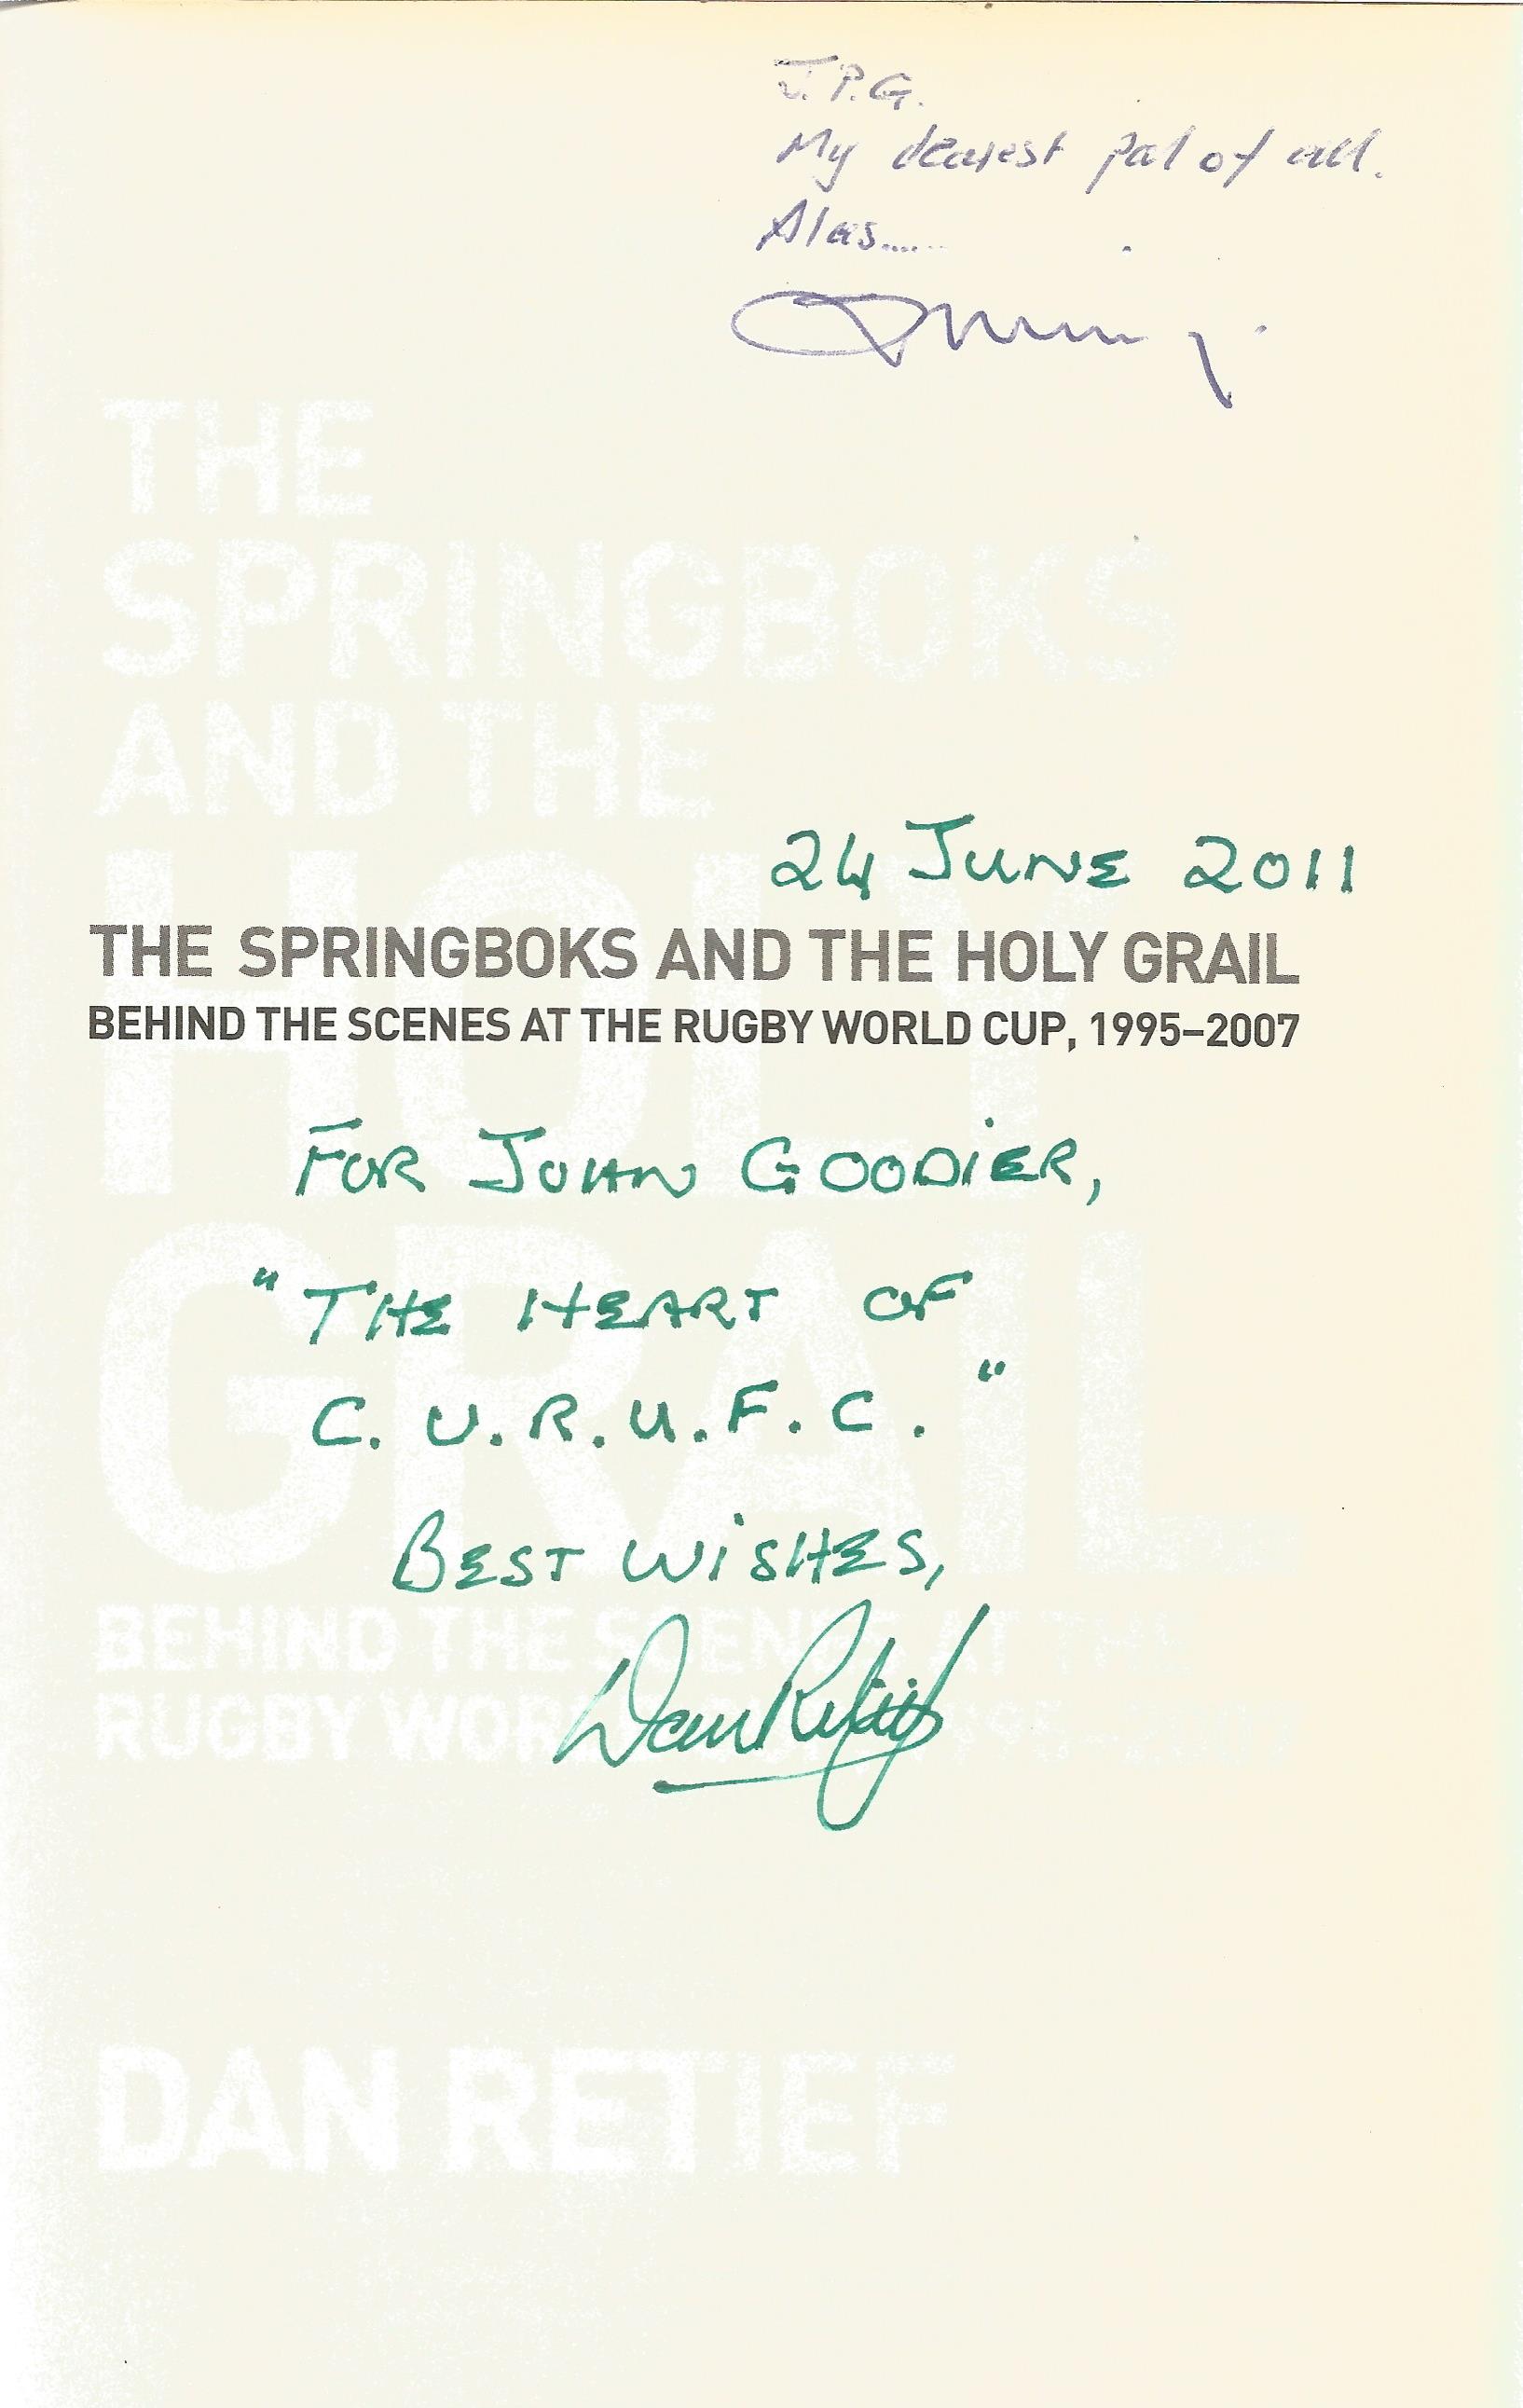 J.P.G.
My dearest pal of all.
Alas......
24 JUNE 2011
THE SPRINGBOKS AND THE HOLY GRAIL
BEHIND THE SCENES AT THE RUGBY WORLD CUP, 1995–2007
FOR JOHN GOODIER,
"THE HEART OF
C.U.R.U.F.C."
BEST WISHES,
Dan Retief
THE
SPRINGBOKS
AND THE
HOLY
GRAIL
BEHIND THE SCENES AT THE
RUGBY WORLD CUP, 1995–2007
DAN RETIEF